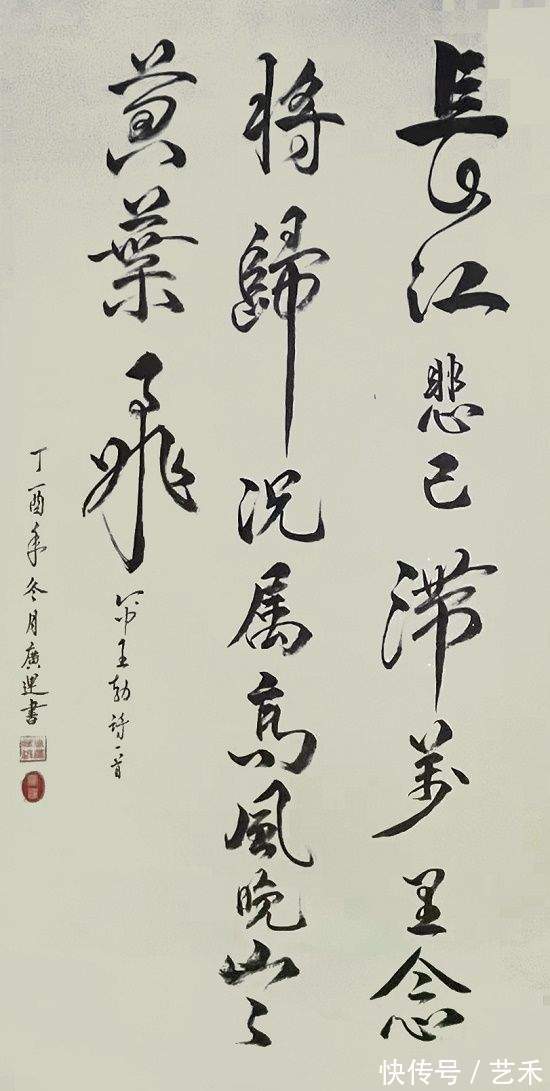 長江悲已滞萬里念
将歸况属高風晚山々
黄葉飛
王勃詩一首
丁酉年冬月廣運書
快传号 / 艺禾